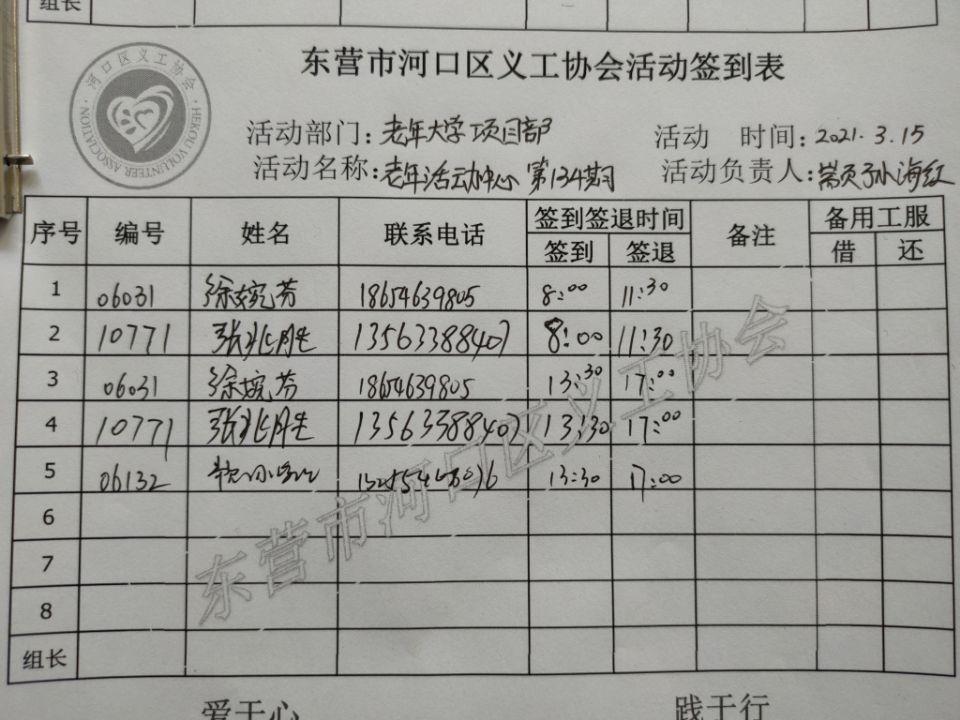 组长
东营市河口区义工协会活动签到表
河口区义工协会
HEKOU VOLUNTEER ASSOCIATION
活动部门:老年大学项目部 活动 时间:2021.3.15
活动名称:老年活动中心 第134期 活动负责人:常页 孙海红
序号 编号 姓名 联系电话 签到签退时间 备注 备用工服
签到 签退 借 还
1 06031 徐婉芳 18654639805 8:00 11:30
2 10771 张兆胜 13563388407 8:00 11:30
3 06031 徐婉芳 18654639805 13:30 17:00
4 10771 张兆胜 13563388407 13:30 17:00
5 06132 13:30 17:00
6
7
8
组长
东营市河口区义工协会
爱于心 践于行